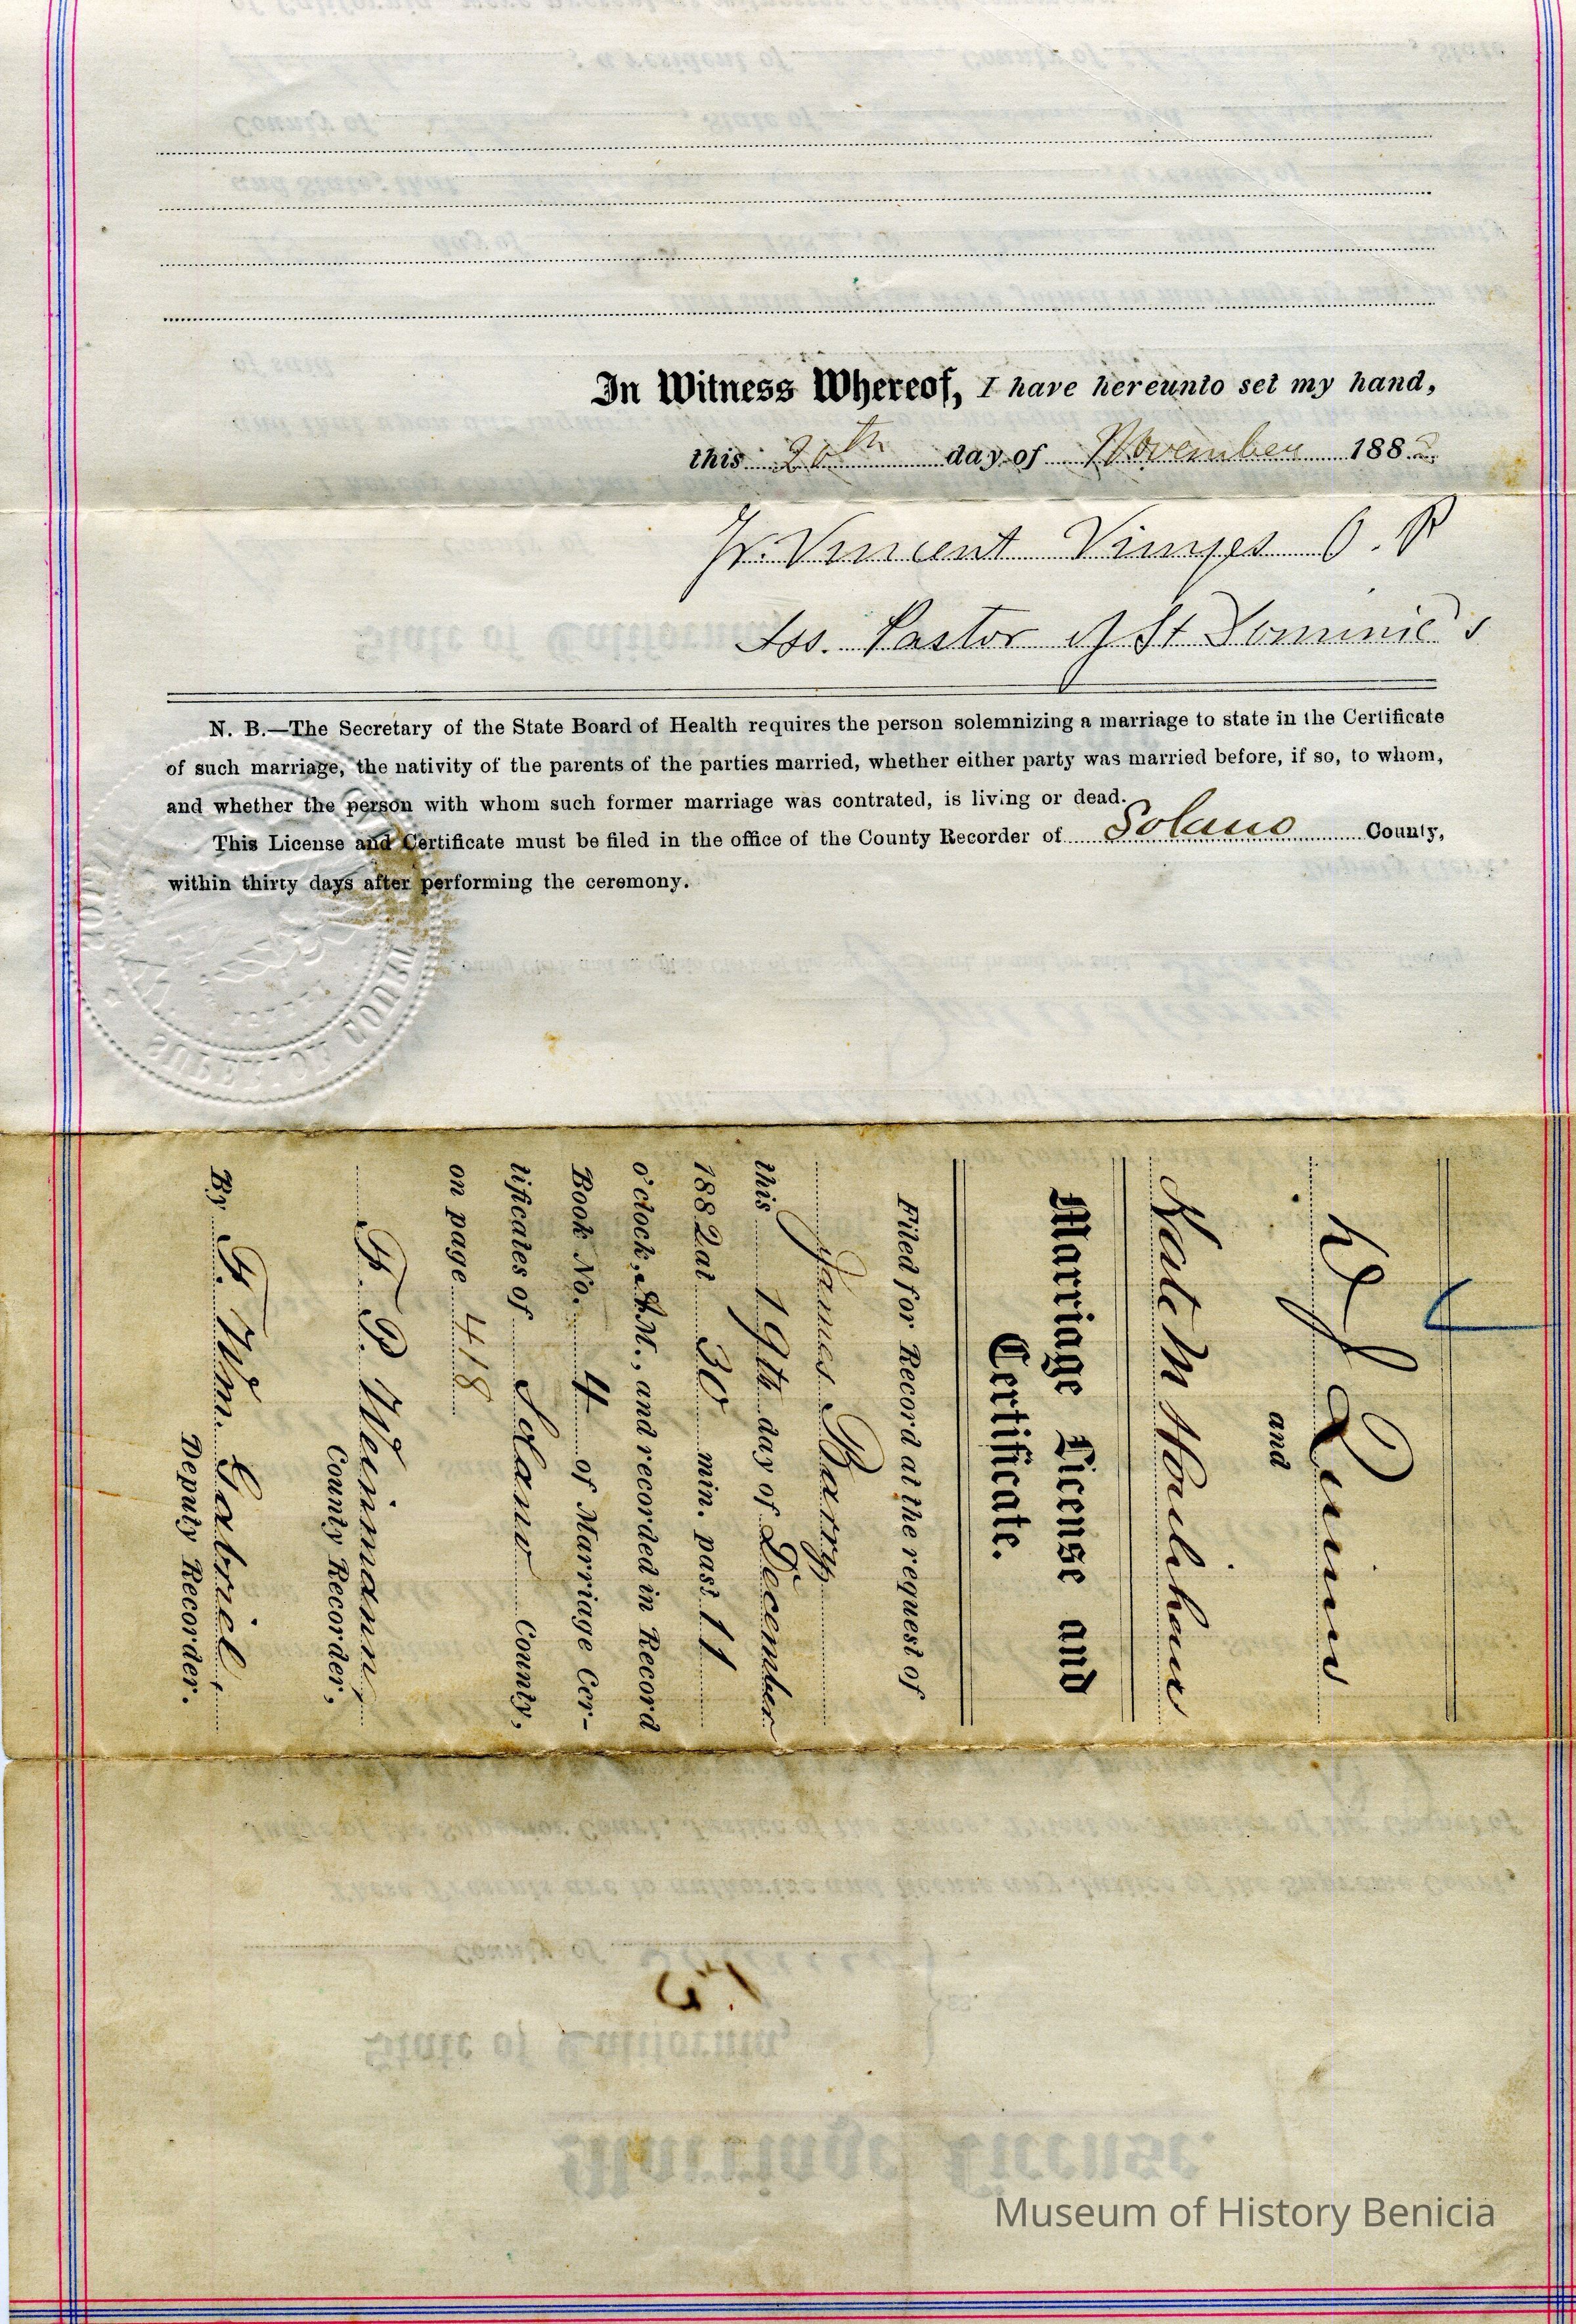 In Witness Whereof, I have hereunto set my hand,
this 20th day of November 1882
Fr. Vincent Vinyes O. P
Ass. Pastor of St Dominic's
N. B.—The Secretary of the State Board of Health requires the person solemnizing a marriage to state in the Certificate
of such marriage, the nativity of the parents of the parties married, whether either party was married before, if so, to whom,
and whether the person with whom such former marriage was contrated, is living or dead.
This License and Certificate must be filed in the office of the County Recorder of Solano County,
within thirty days after performing the ceremony.
SUPERIOR COURT
and
Kate M Houlihan
Marriage License and
Certificate.
Filed for Record at the request of
James Barry
this 19th day of December
1882 at 30 min. past 11
o'clock, A.M., and recorded in Record
Book No. 4 of Marriage Cer-
tificates of Solano County,
on page 418
F. P. Weinmann,
County Recorder,
By F. Wm. Gabriel,
Deputy Recorder.
State of California,
County of
Marriage License.
Museum of History Benicia